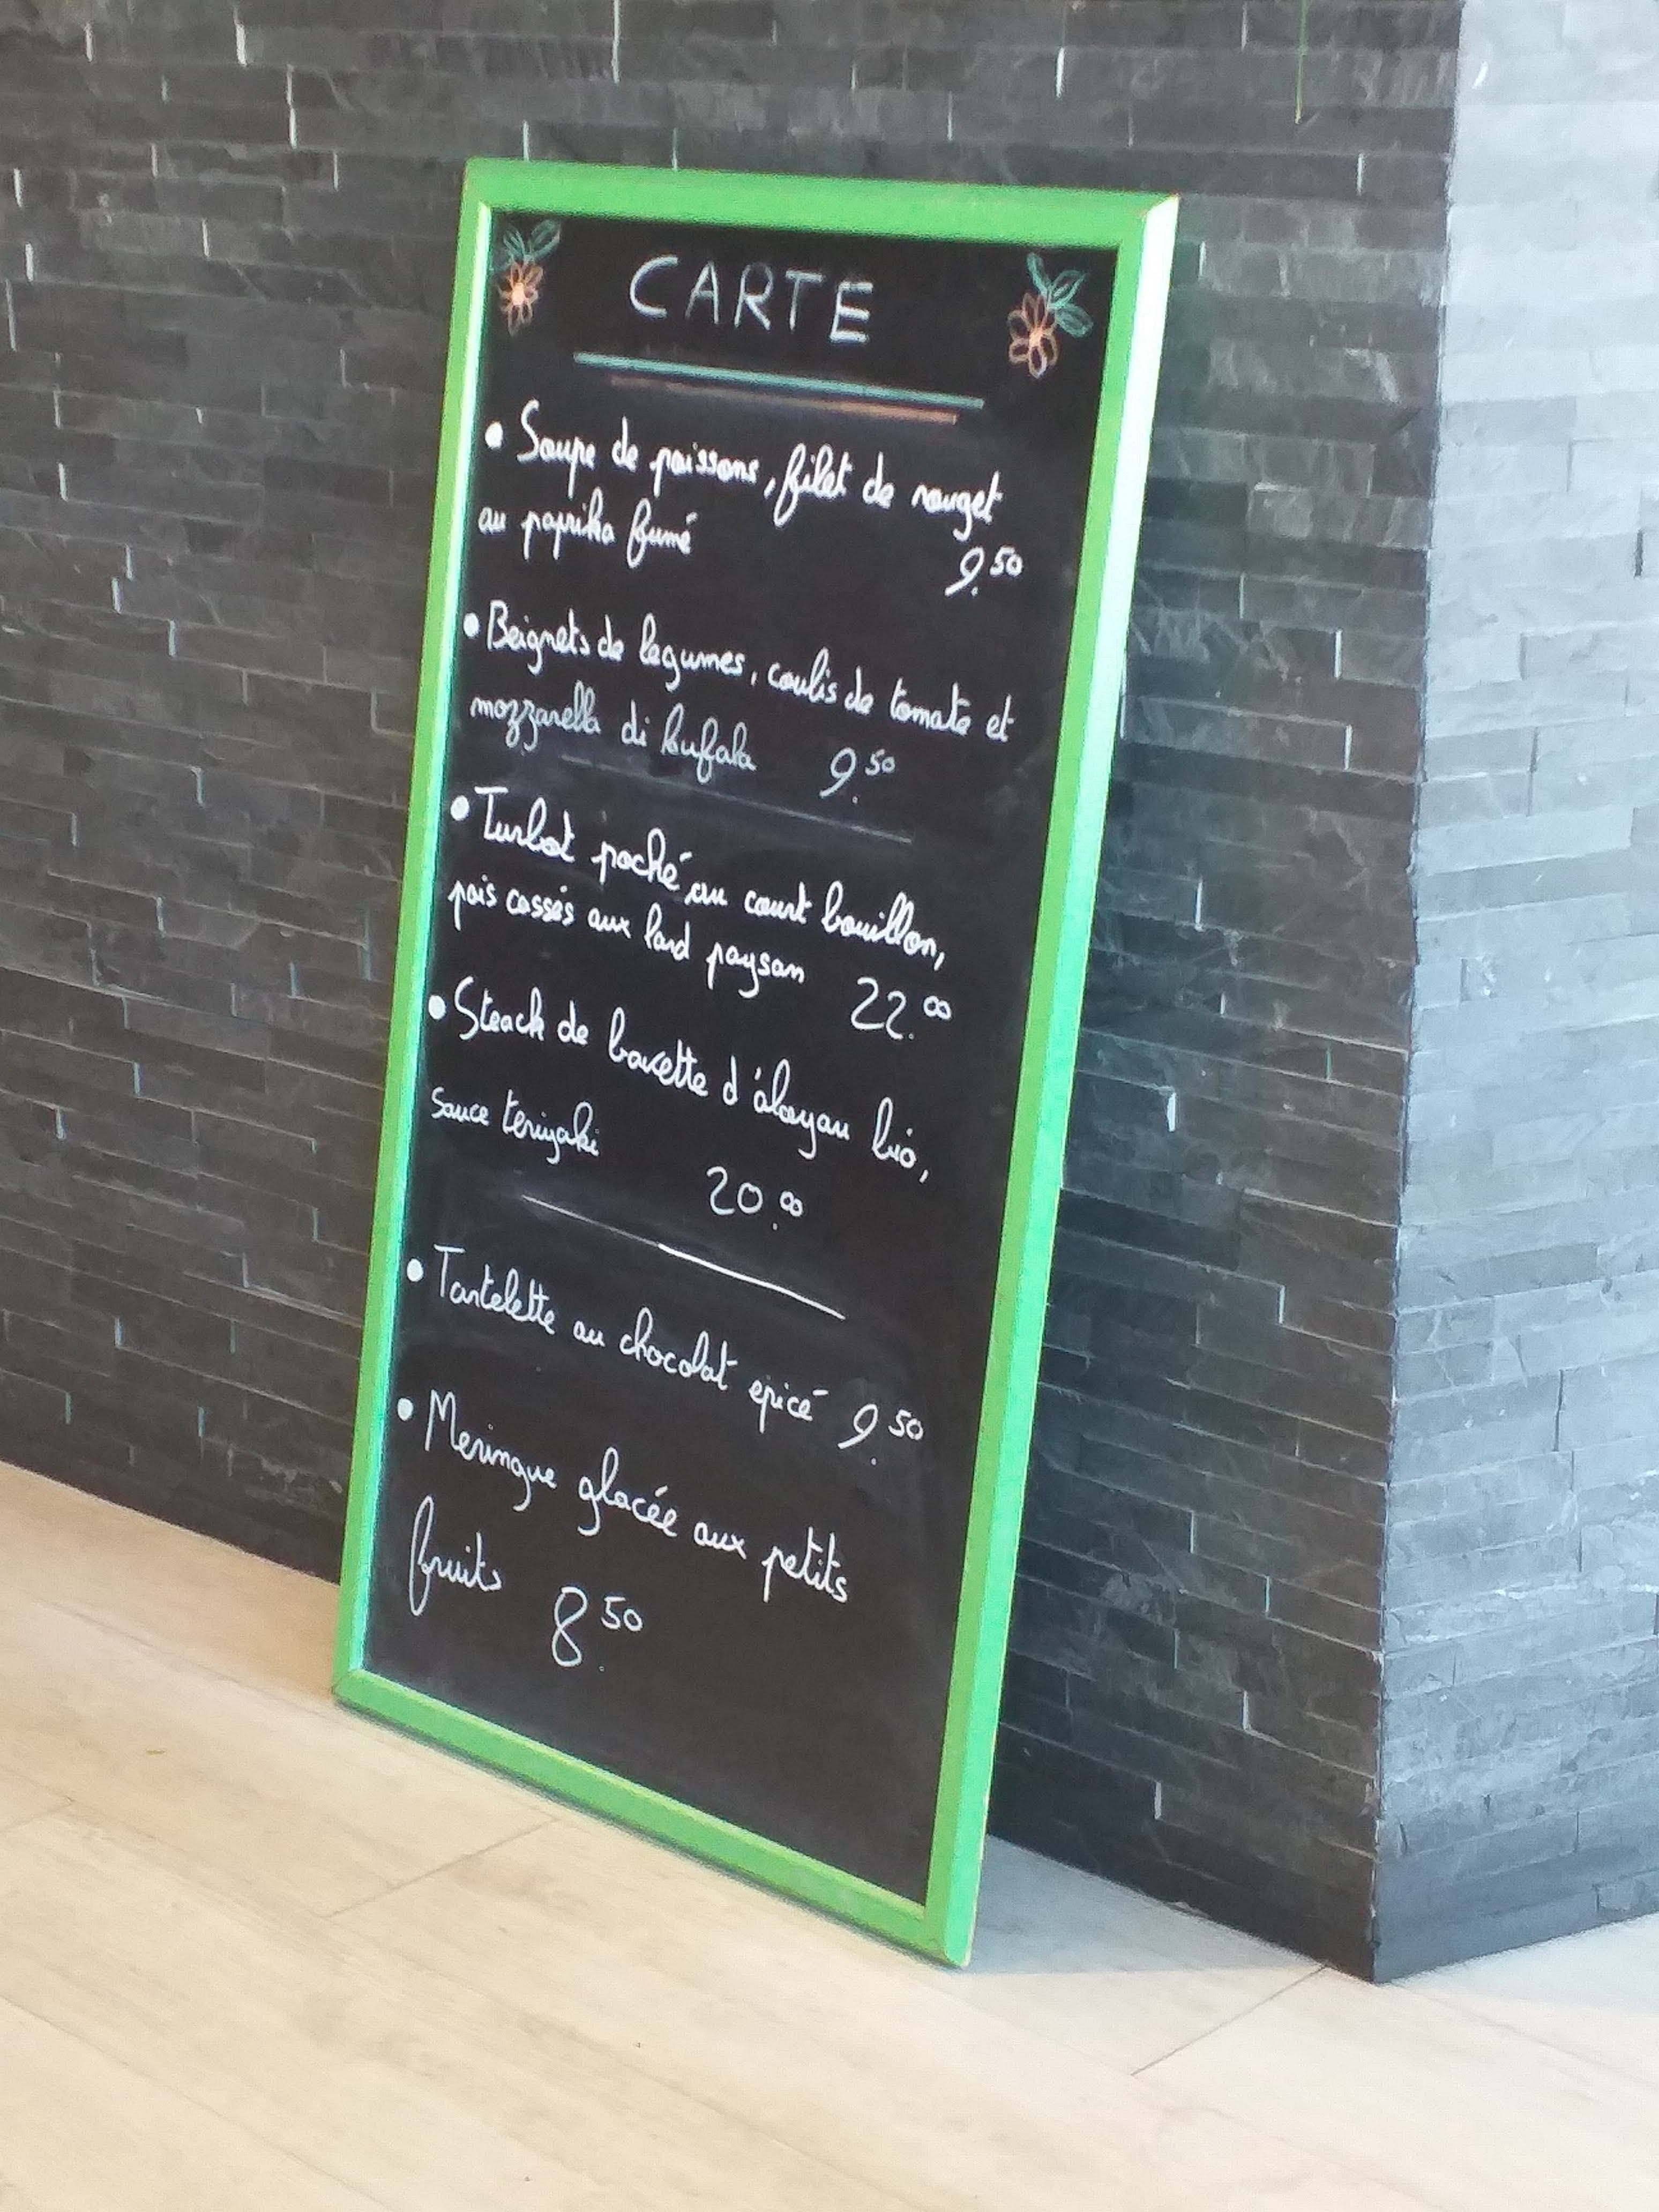 CARTE
• Soupe de poissons, filet de rouget
au paprika fumé 9.50
• Beignets de legumes, coulis de tomate et
mozzarella di bufala 9.50
• Turbot poché au court bouillon,
pois cassés aux lard paysan 22.00
• Steack de bavette d'áloyau bio,
sauce teriyaki 20.00
• Tartelette au chocolat epicé 9.50
• Meringue glacée aux petits
fruits 8.50